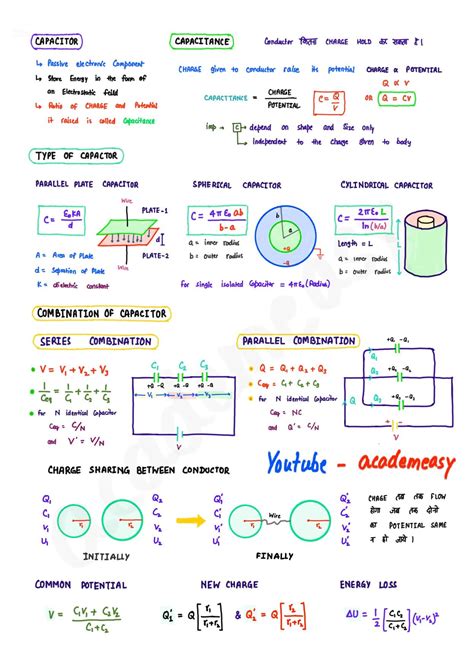 CAPACITOR
↳ Passive electronic Component
↳ Store Energy in the form of
an Electrostatic field
↳ Ratio of CHARGE and Potential
it raised is called Capacitance
CAPACITANCE
Conductor कितना CHARGE HOLD कर सकता है।
CHARGE given to conductor raise its potential CHARGE α POTENTIAL
Q α V
CAPACITANCE = CHARGE / POTENTIAL
C = Q/V
OR Q = CV
imp → C → depend on shape and Size only
↳ independent to the charge given to body
TYPE OF CAPACTOR
PARALLEL PLATE CAPACITOR
C = E₀KA / d
Wire
PLATE-1
PLATE-2
d
Wire
A = Area of Plate
d = Sepration of Plate
K = dielectric constant
SPHERICAL CAPACITOR
C = 4πE₀ ab / b-a
a = inner radius
b = outer radius
b
a
-Q
+Q
For single isolated Capacitor = 4πE₀ (Radius)
CYLINDRICAL CAPACITOR
C = 2πE₀ L / ln(b/a)
Length = L
a = inner radius
b = outer radius
L
COMBINATION OF CAPACITOR
SERIES COMBINATION
• V = V₁ + V₂ + V₃
• 1/Ceq = 1/C₁ + 1/C₂ + 1/C₃
• for N identical Capacitor
Ceq = C/N
and V' = V/N
C₁ C₂ C₃
+Q -Q +Q -Q +Q -Q
V₁ V₂ V₃
V
PARALLEL COMBINATION
• Q = Q₁ + Q₂ + Q₃
• Ceq = C₁ + C₂ + C₃
• For N identical Capacitor
Ceq = NC
and Q' = C/N
+Q₁ -Q₁
Q₁
Q₂
Q₃
V
Youtube - academeasy
CHARGE SHARING BETWEEN CONDUCTOR
Q₁ Q₂ Q₁' Q₂'
C₁ C₂ C₁ C₂
V₁ V₂ V₁' V₂'
U₁ U₂ U₁' U₂'
r₁ r₂ r₁ Wire r₂
INITIALLY
FINALLY
CHAGE तब तक FLOW
होगा जब तक दोनो
का POTENTIAL SAME
न हो जाये।
COMMON POTENTIAL
V = C₁V₁ + C₂V₂ / C₁+C₂
NEW CHARGE
Q₁' = Q [r₁ / r₁+r₂] & Q₂' = Q [r₂ / r₁+r₂]
ENERGY LOSS
ΔU = 1/2 [C₁C₂ / C₁+C₂] (V₁-V₂)²